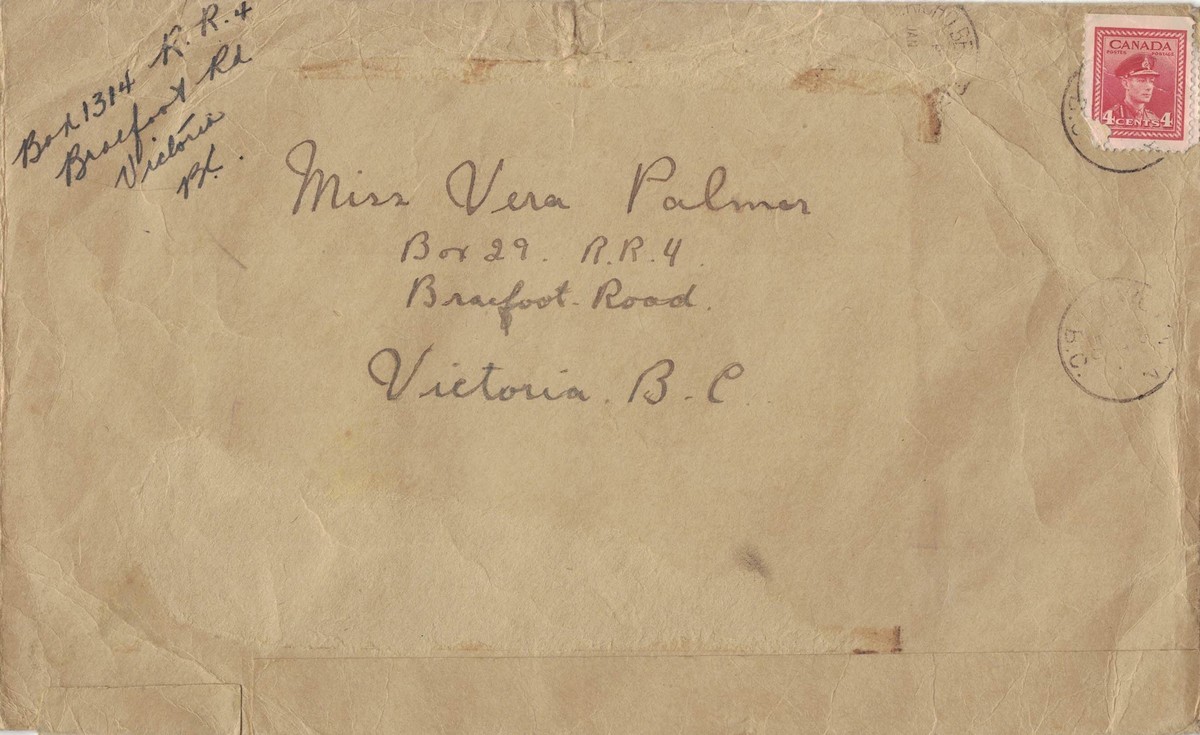 Box 1314 R.R.4
Braefoot Rd
Victoria
BC.
CANADA
POSTES POSTAGE
4 CENTS 4
Miss Vera Palmer
Box 29. R.R.4.
Braefoot-Road.
Victoria. B.C
B.C.